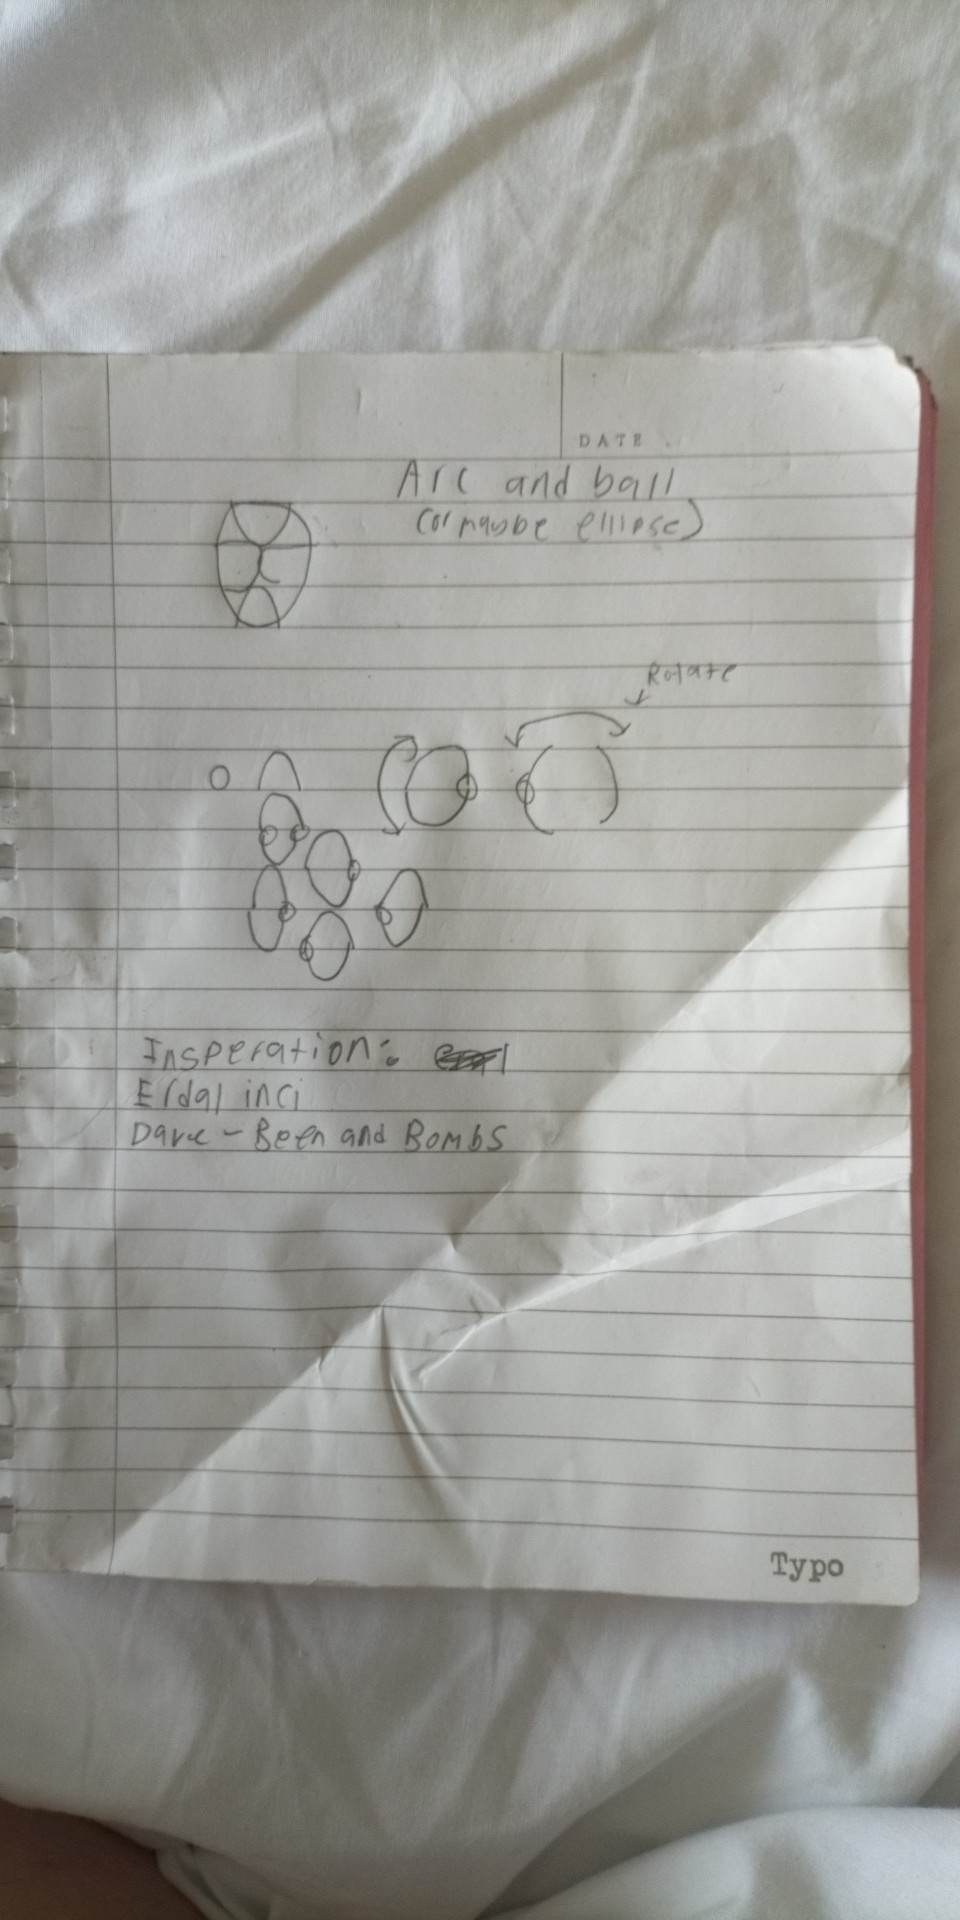 DATE
Arc and ball
(or maybe ellipse)
Rotate
Insperation:
Erdal inci
Dave - Been and Bombs
Typo